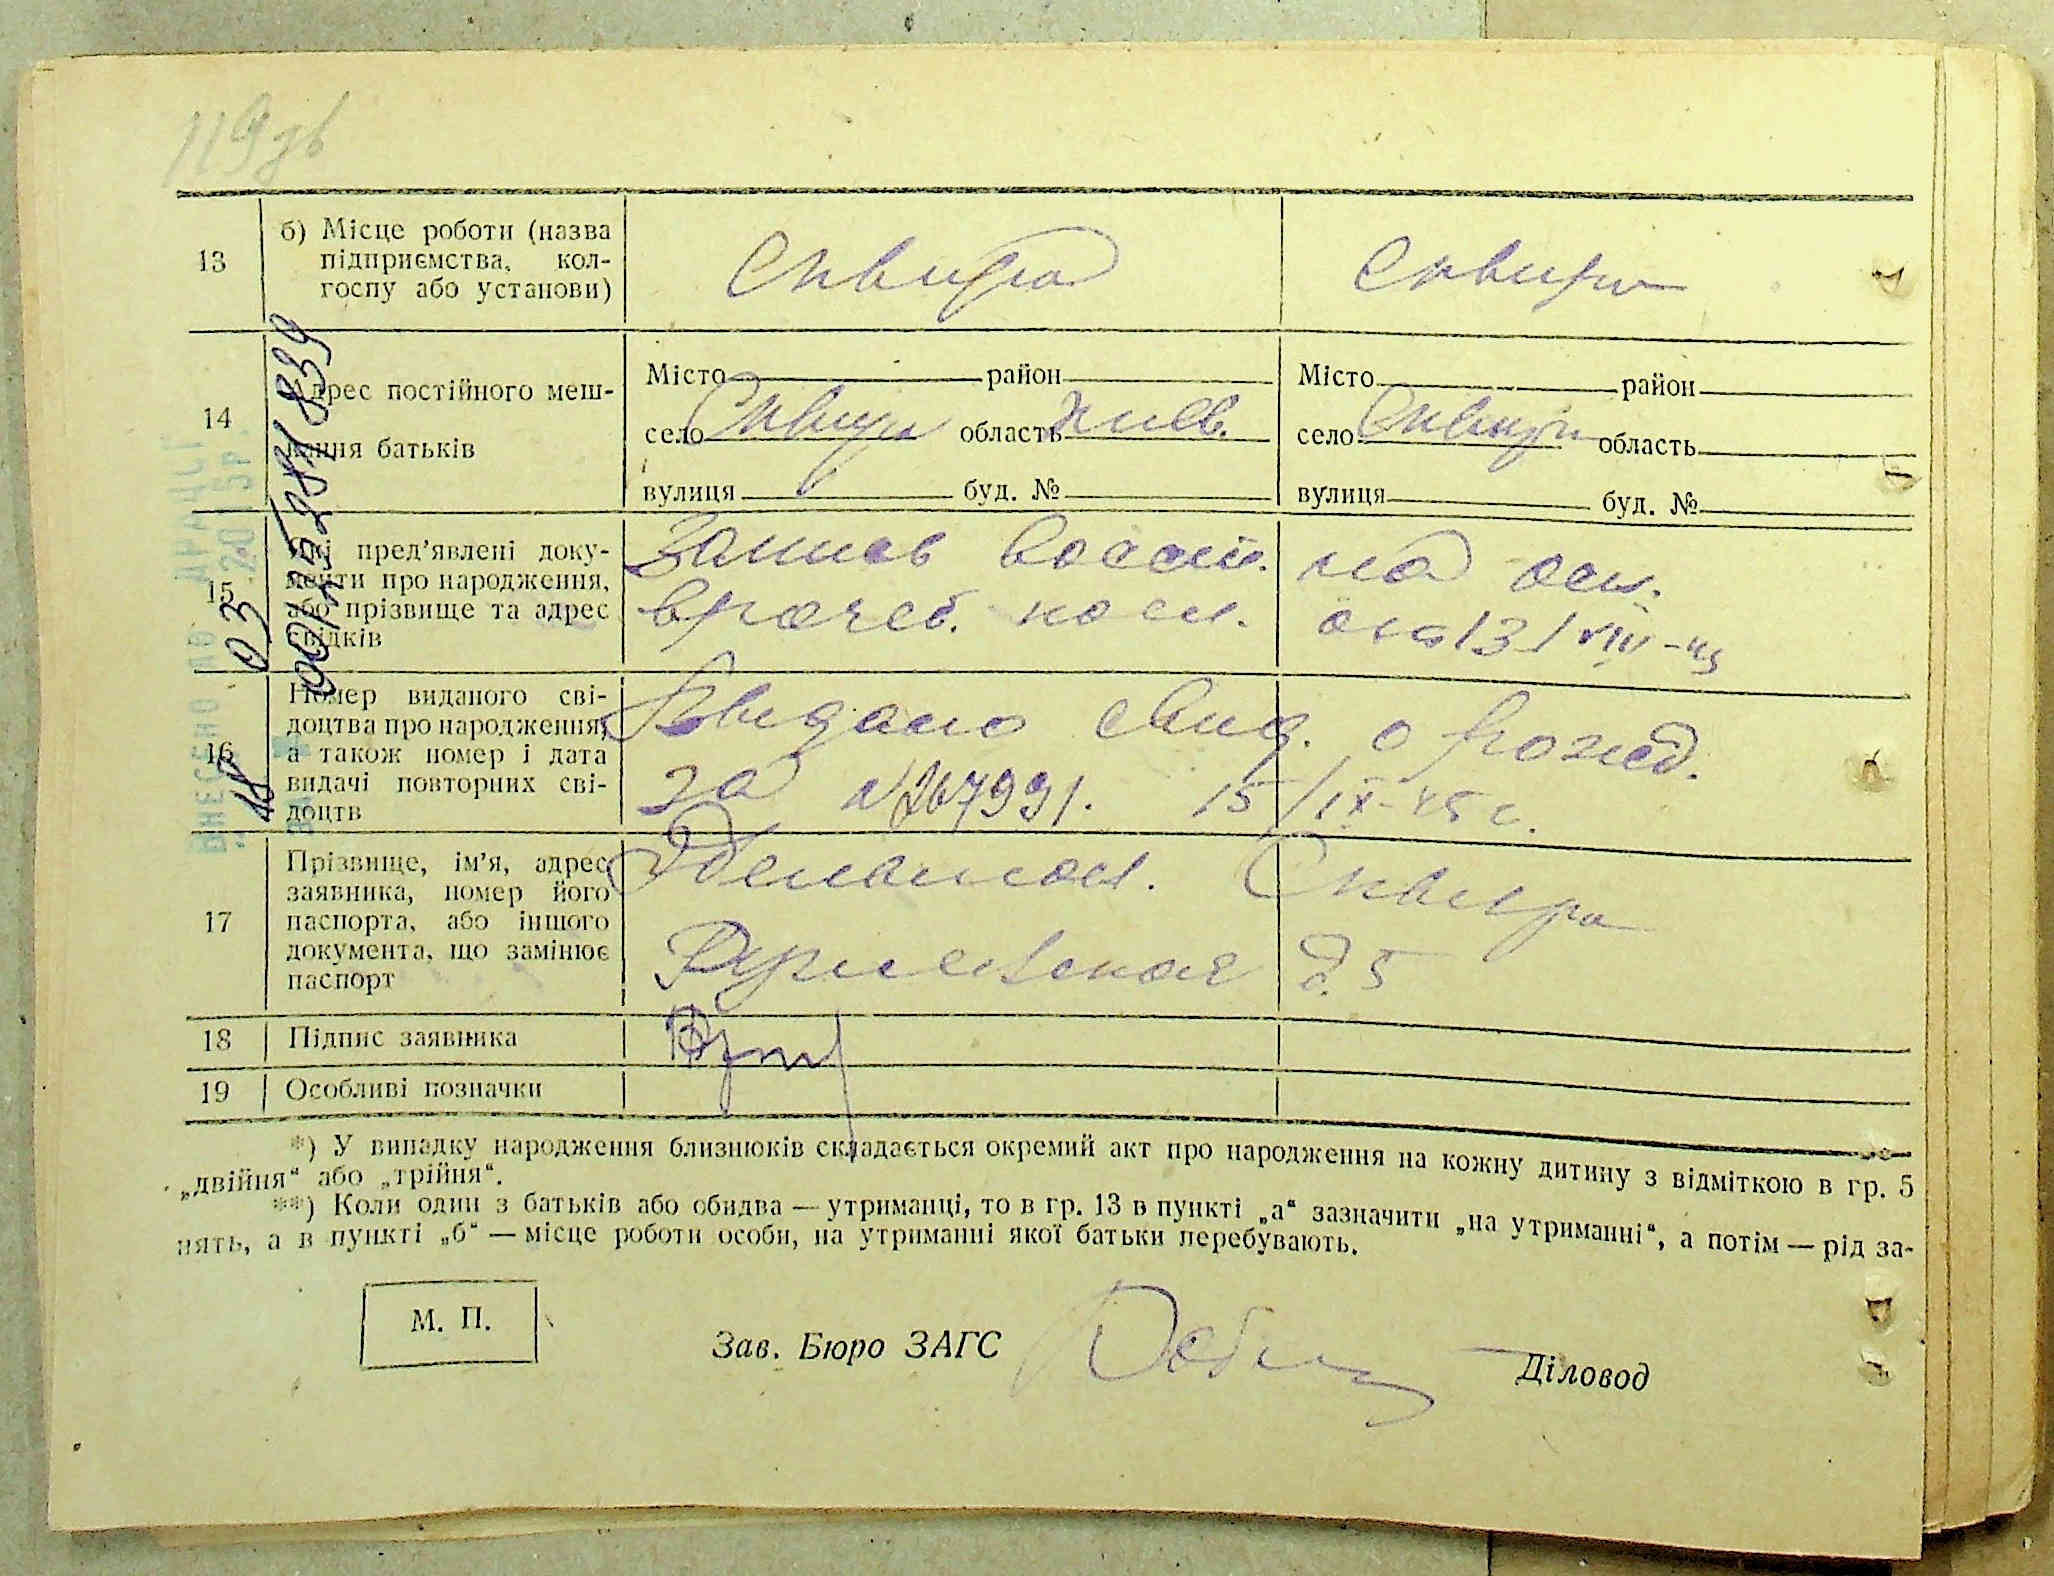 119 зв
13
б) Місце роботи (назва
підприємства, кол-
госпу або установи)
Сквира
Сквира
14
Адрес постійного меш-
кання батьків
Місто район
село Сквира область Киев.
вулиця буд. №
Місто район
село Сквира область
вулиця буд. №
00125281839
18 03
ВНЕСЕНО ДО ДРАЦСГ
2015р.
15
Які пред’явлені доку-
менти про народження,
або прізвище та адрес
свідків
Запись восст.
врачеб. ком.
на осн.
16
Номер виданого сві-
доцтва про народження,
а також номер і дата
видачі повторних сві-
доцтв
Выдано свид. о рожд.
за № 267991. 15/IX-45 г.
17
Прізвище, ім’я, адрес
заявника, номер його
паспорта, або іншого
документа, що замінює
паспорт
Сквира
д. 5
18
Підпис заявника
19
Особливі позначки
*) У випадку народження близнюків складається окремий акт про народження на кожну дитину з відміткою в гр. 5
„двійня“ або „трійня“.
**) Коли один з батьків або обидва — утриманці, то в гр. 13 в пункті „а“ зазначити „на утриманні“, а потім — рід за-
нять, а в пункті „б“ — місце роботи особи, на утриманні якої батьки перебувають.
М. П.
Зав. Бюро ЗАГС
Діловод